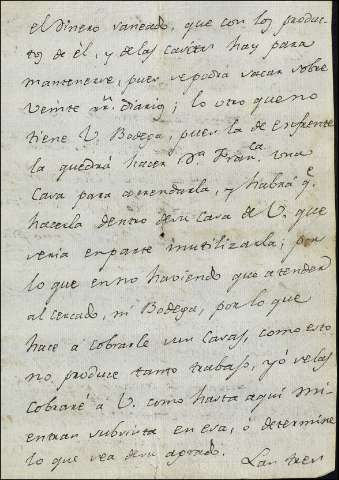 el dinero saneado, que con los produc-
tos de él, y de las casitas hay para
mantenerse, pues se podra sacar sobre
veinte rr.ˢ diarios; lo otro que no
tiene V. Bodega, pues la de enfrente
la quedrá hacer D.ª Fran.ca una
Casa para arrendarla, y habrá q.e
hacerla dentro de su Casa de V. que
seria en parte inutilizarla; por
lo que en no haviendo que atender
al cercado, ni Bodega, por lo que
hace á cobrarle sus Casas, como esto
no produce tanto trabajo, yó se las
cobraré á V. como hasta aqui mi-
entras subsista en esa, ó determine
lo que sea de su agrado. Las tres